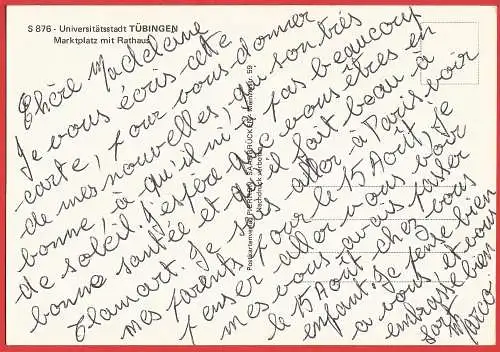 S 876 - Universitätsstadt TÜBINGEN
Marktplatz mit Rathaus
Chère Madeleine
Je vous écris cette
carte, pour vous donner
de mes nouvelles, qui son très
bonne, à qu'il ni, a pas beaucoup
de soleil. J'espère que vous êtres en
bonne santée et qu'il fait beau à
Clamart. Je vais aller à Paris voir
mes parents pour le 15 Août, je
penser aller vous voir
mes vous avais passer
le 15 Août chez vous
enfant. Je pense bien
a vous et vous
embrasse bien
fort
Marco